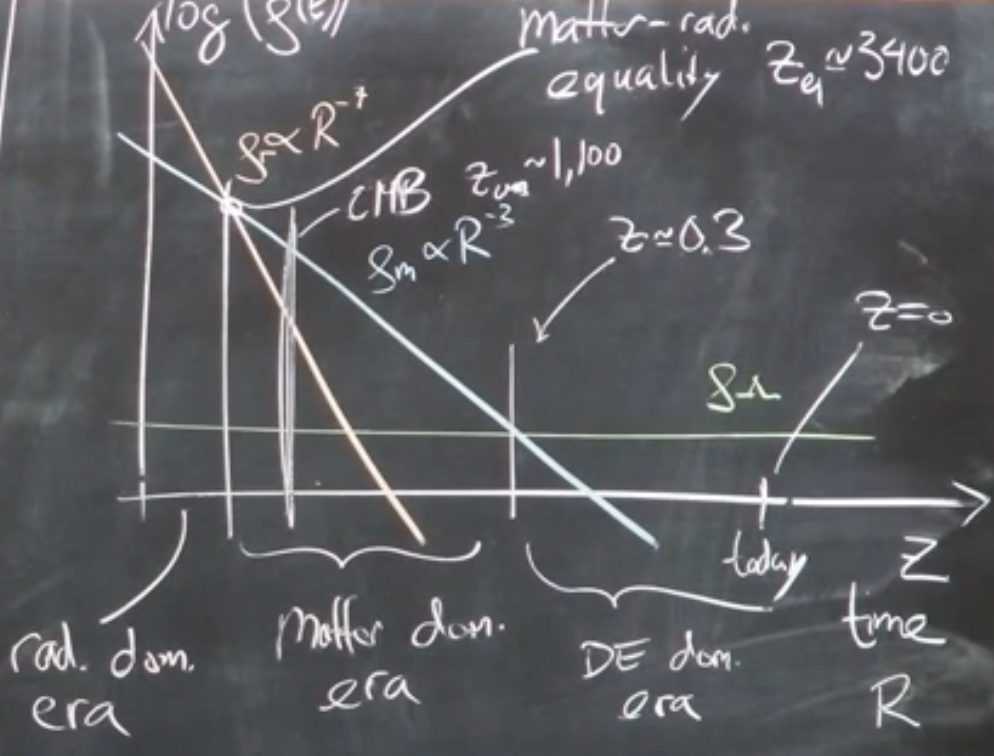 log (ρ(t))
matter-rad.
equality z_eq ≃ 3400
ρ_r ∝ R^-4
CMB z ~1,100
ρ_m ∝ R^-3
z ≃ 0.3
z=0
ρ_Λ
today
z
time
R
rad. dom.
era
Matter dom.
era
DE dom.
era